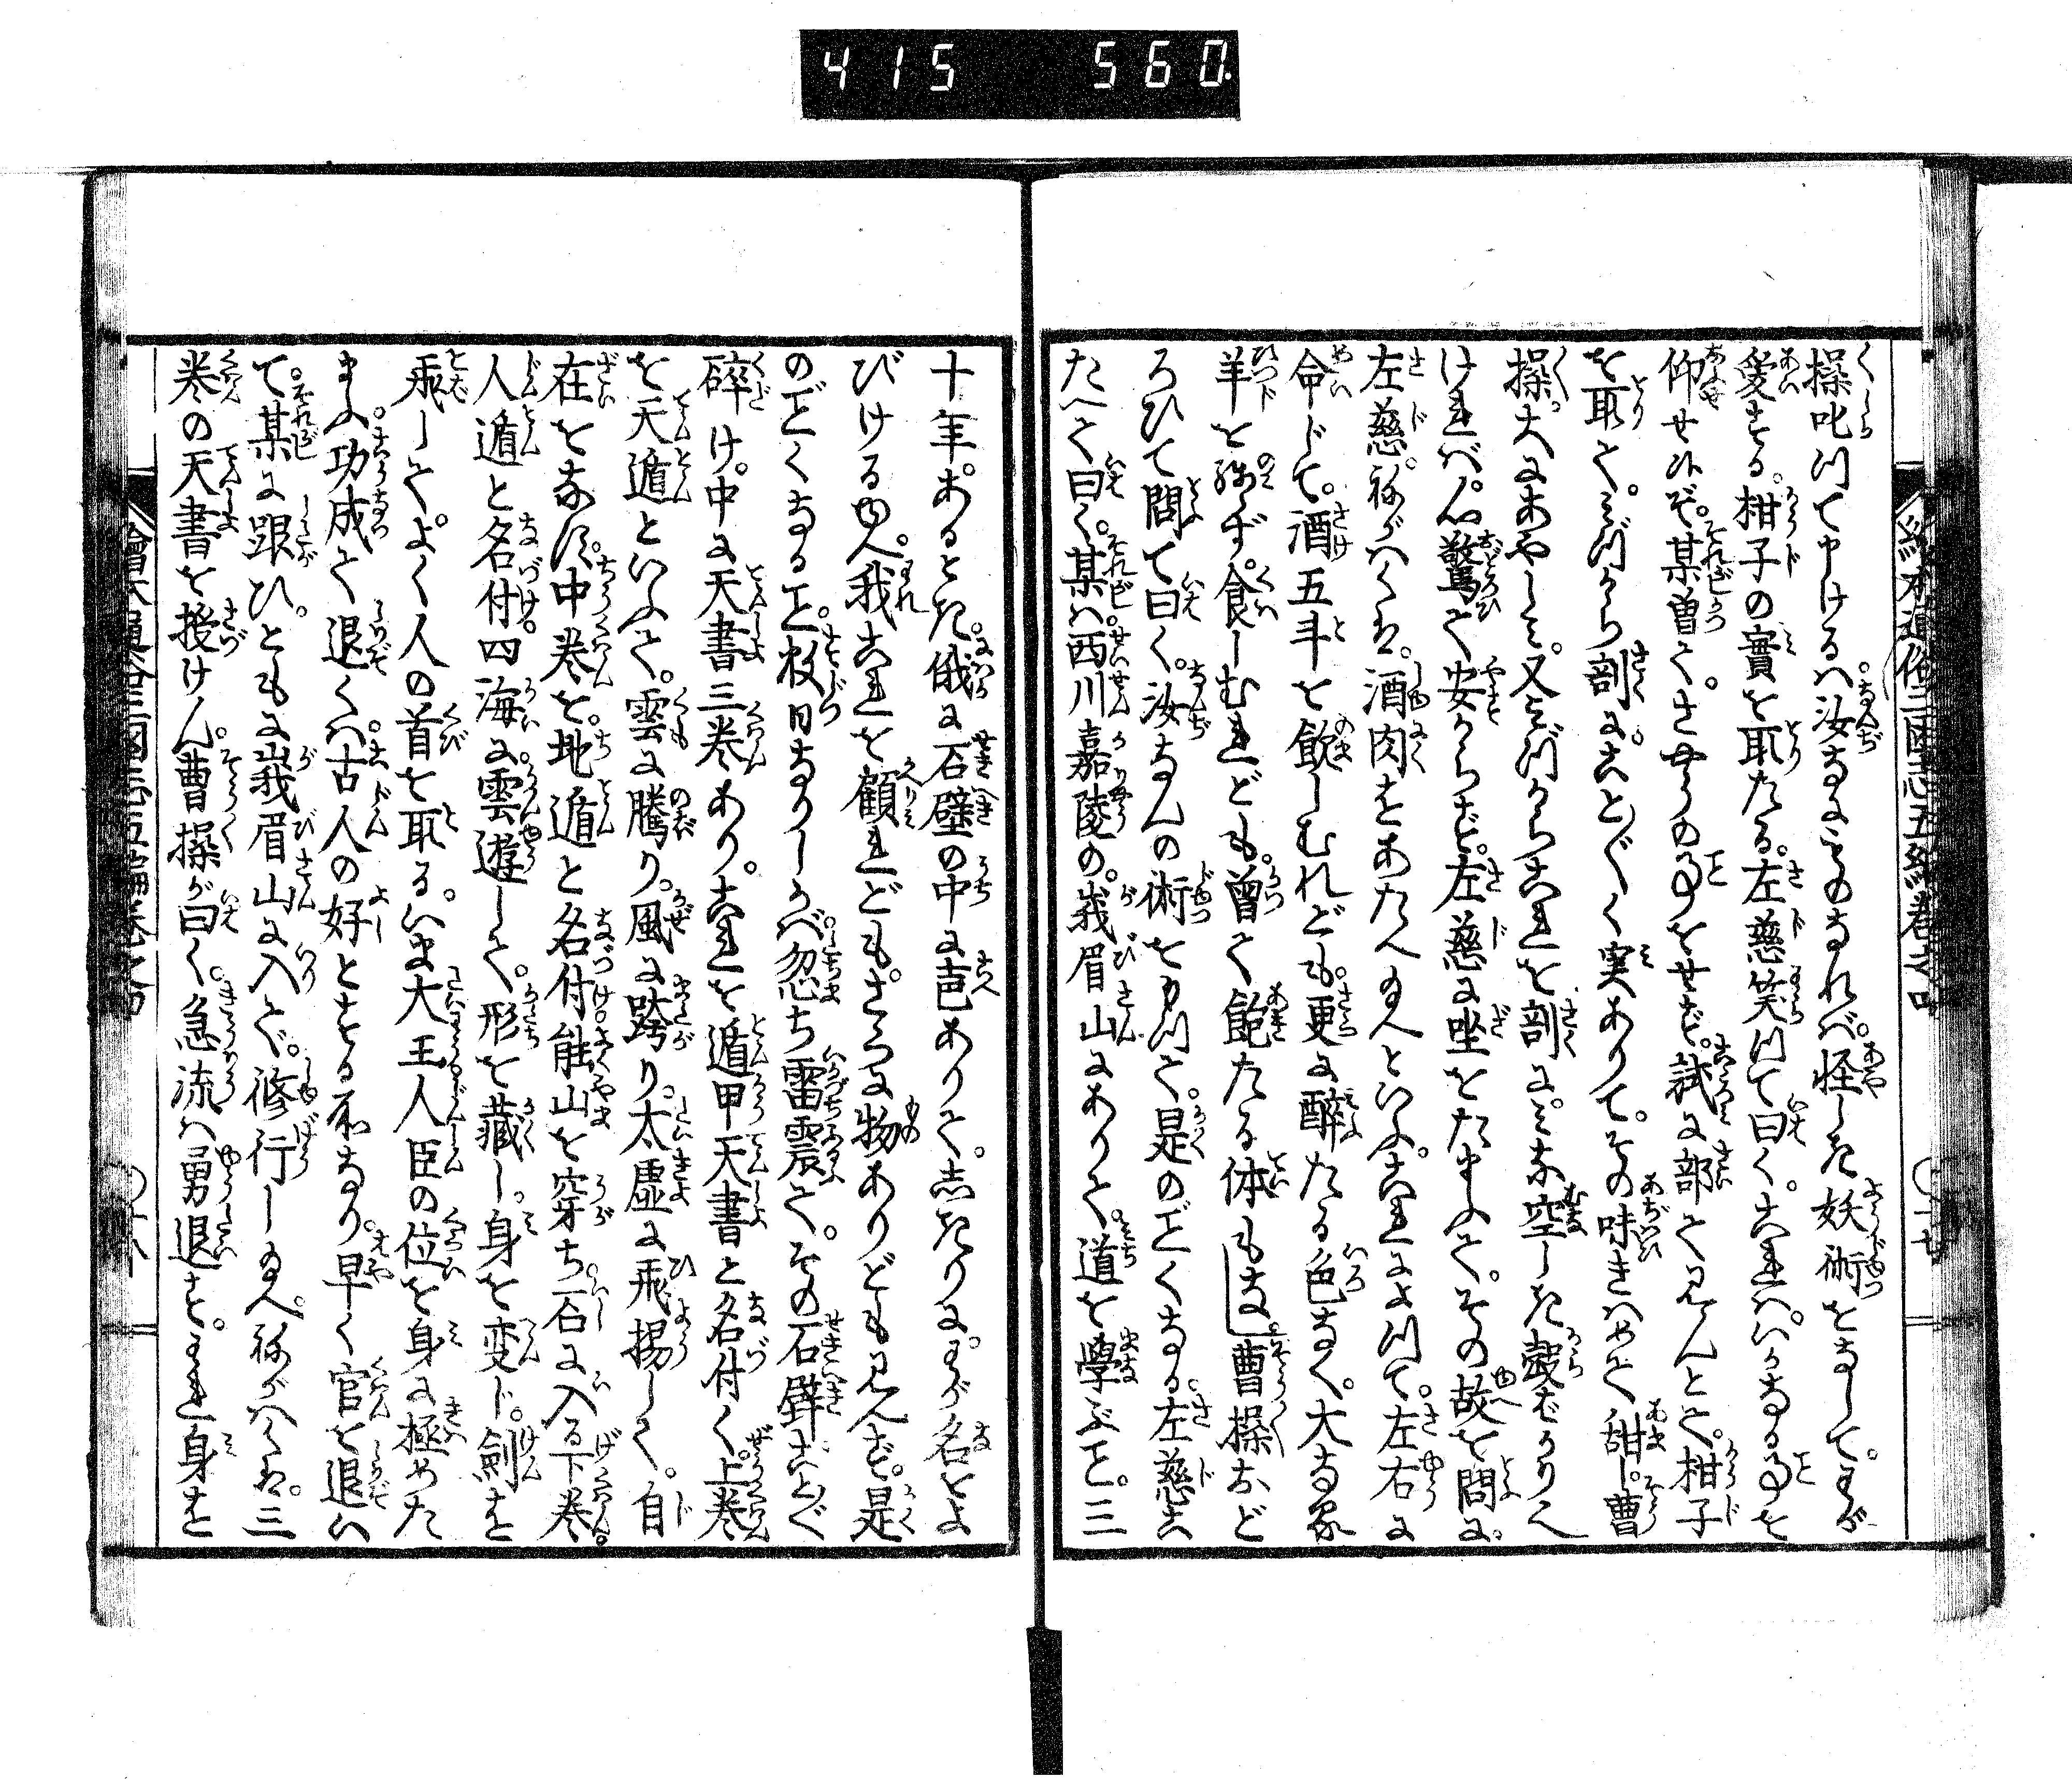 415 560
操叱けて申けるハ。汝なにものなれバ。怪しき妖術をなして。わが
愛する。柑子の實を取たる。左慈笑けて曰く。これハ。いかなる事を
仰せ候ぞ。某曽て。さやうの事をせず。試に部て見んとて。柑子
を取て。みづから剖にことごとく実ありて。その味きハめて甜し。曹
操大にあやしミ。又みづからこれを剖に。ミな空しき殻ばかりな
けれバ。心驚て安からず。左慈に坐をたまふて。その故を問に。
左慈。ねがハくハ。酒肉をあたへ玉へといふ。これによつて。左右に
命じて。酒五斗を飲しむれども。更に醉たる色なく。大なる
羊を殘ず。食しむれども。曽て飽たる体もなし。曹操おど
ろひて問て曰く。汝なんの術を以て。是のごくなる。左慈こ
たへて曰く。某ハ西川嘉陵の。峩眉山にありて。道を學ぶこと。三
十年。あるとき。俄に石壁の中に声ありて。しきりに。わが名をよ
びけるゆへ。我これを顧れども。さらに物ありとも見へず。是
のごくなること。数日なりしかバ。忽ち雷震て。その石壁ことごとく
碎け。中に天書三巻あり。これを遁甲天書と名付く。上巻
を天遁といふて。雲に騰り。風に跨り。太虚に飛揚して。自
在をなす。中巻を。地遁と名付。能山を穿ち。石に入る下巻。
人遁と名付。四海に。雲遊して。形を藏し身を変ド。剣を
飛して。よく人の首を取る。いま大王人臣の位を身に極めた
まふ。功成て退くハ。古人の好とする所なり。早く官を退ハ
て。某に跟ひ。ともに峩眉山に入て。修行し玉へ。ねがハくハ。三
巻の天書を授けん。曹操が曰く。急流ハ勇退す。われ身を